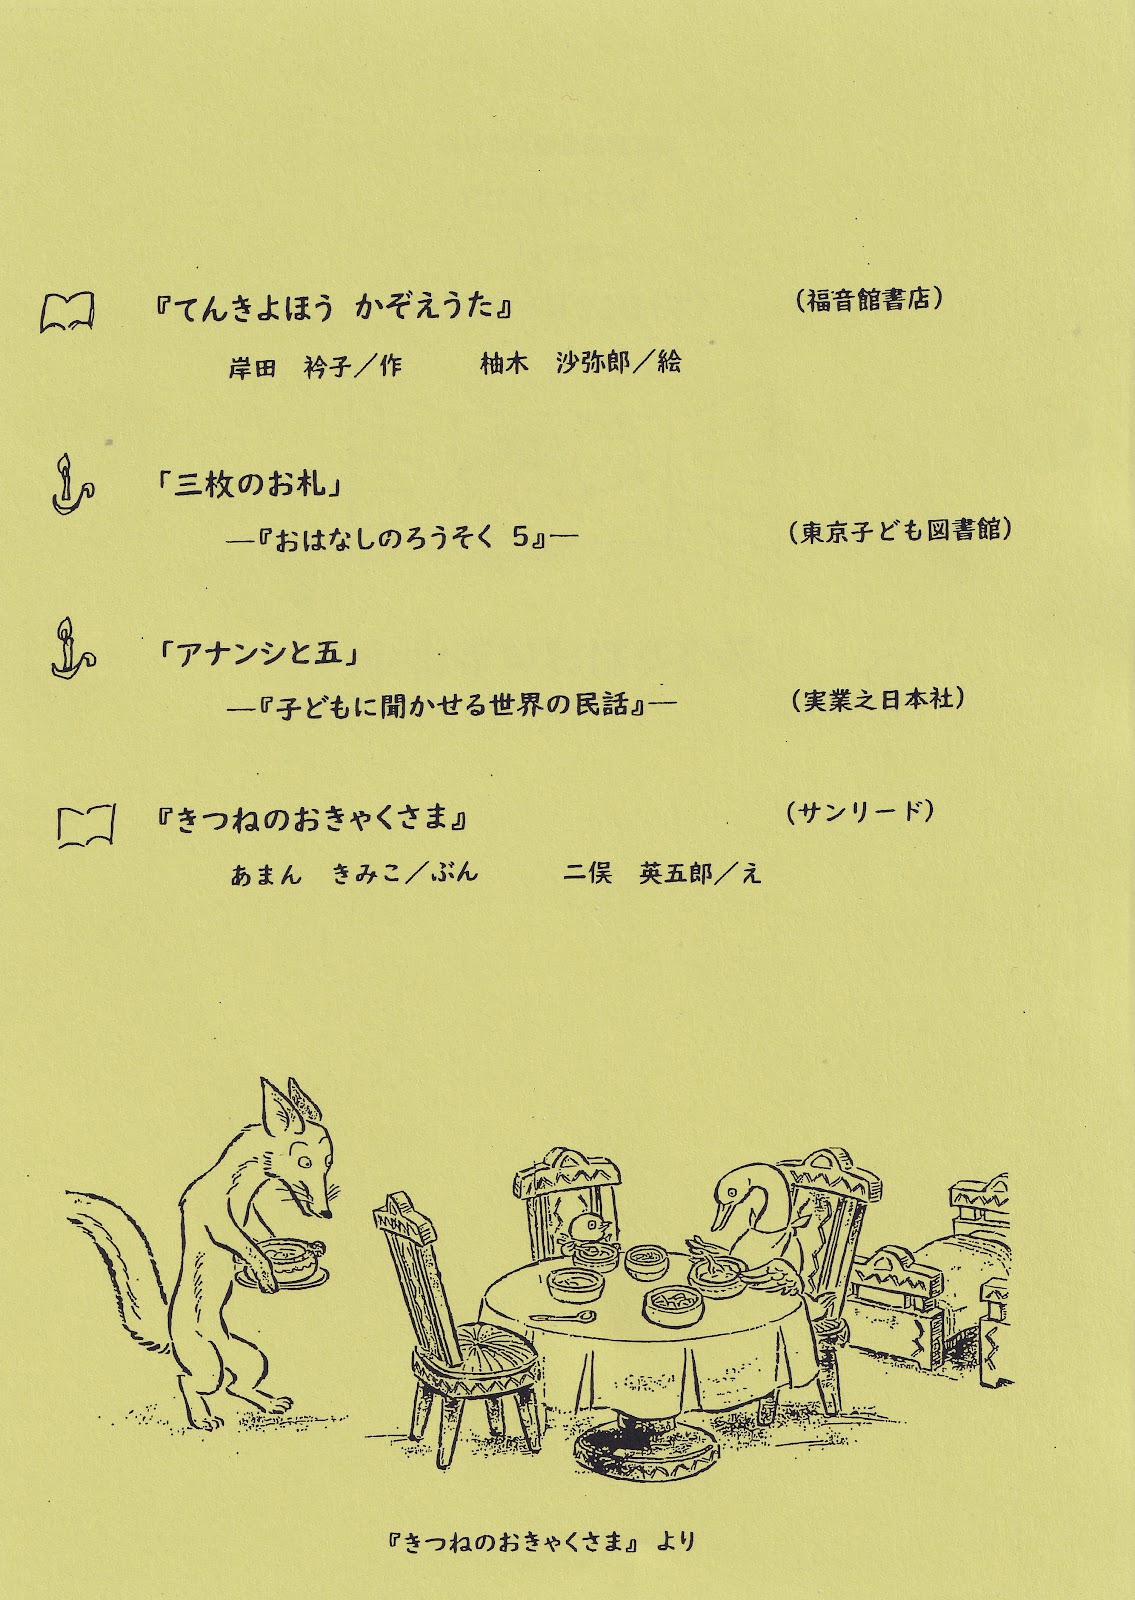 『てんきよほう かぞえうた』 (福音館書店)
岸田 衿子／作 柚木 沙弥郎／絵
「三枚のお札」
―『おはなしのろうそく 5』― (東京子ども図書館)
「アナンシと五」
―『子どもに聞かせる世界の民話』― (実業之日本社)
『きつねのおきゃくさま』 (サンリード)
あまん きみこ／ぶん 二俣 英五郎／え
『きつねのおきゃくさま』 より